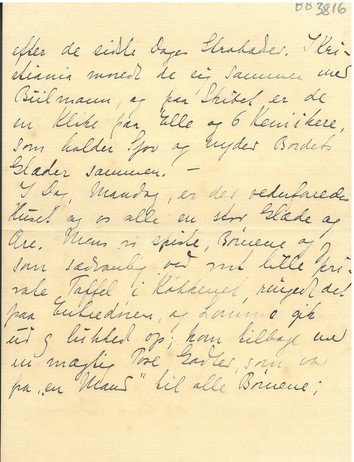 BB3816
efter de sidste Dages Strabadser. I Kri-
stiania morede de sig sammen med
Biilmann, og paa Skibet er de
en Klike paa Elle og 6 Kemikere,
som holder Sjov og nyder Bordets
Glæder sammen. —
I Dag, Mandag, er der vederfaredes
Huset og os alle en stor Glæde og
Ære. Mens vi spiste, Børnene og
som sædvanlig ved mit lille pri-
vate Taffel i Køkkenet, ringede det
paa Entredøren, og Lomme gik
ud og lukked op; kom tilbage med
en mægtig Pose Godter, som var
fra „en Mand" til alle Børnene;